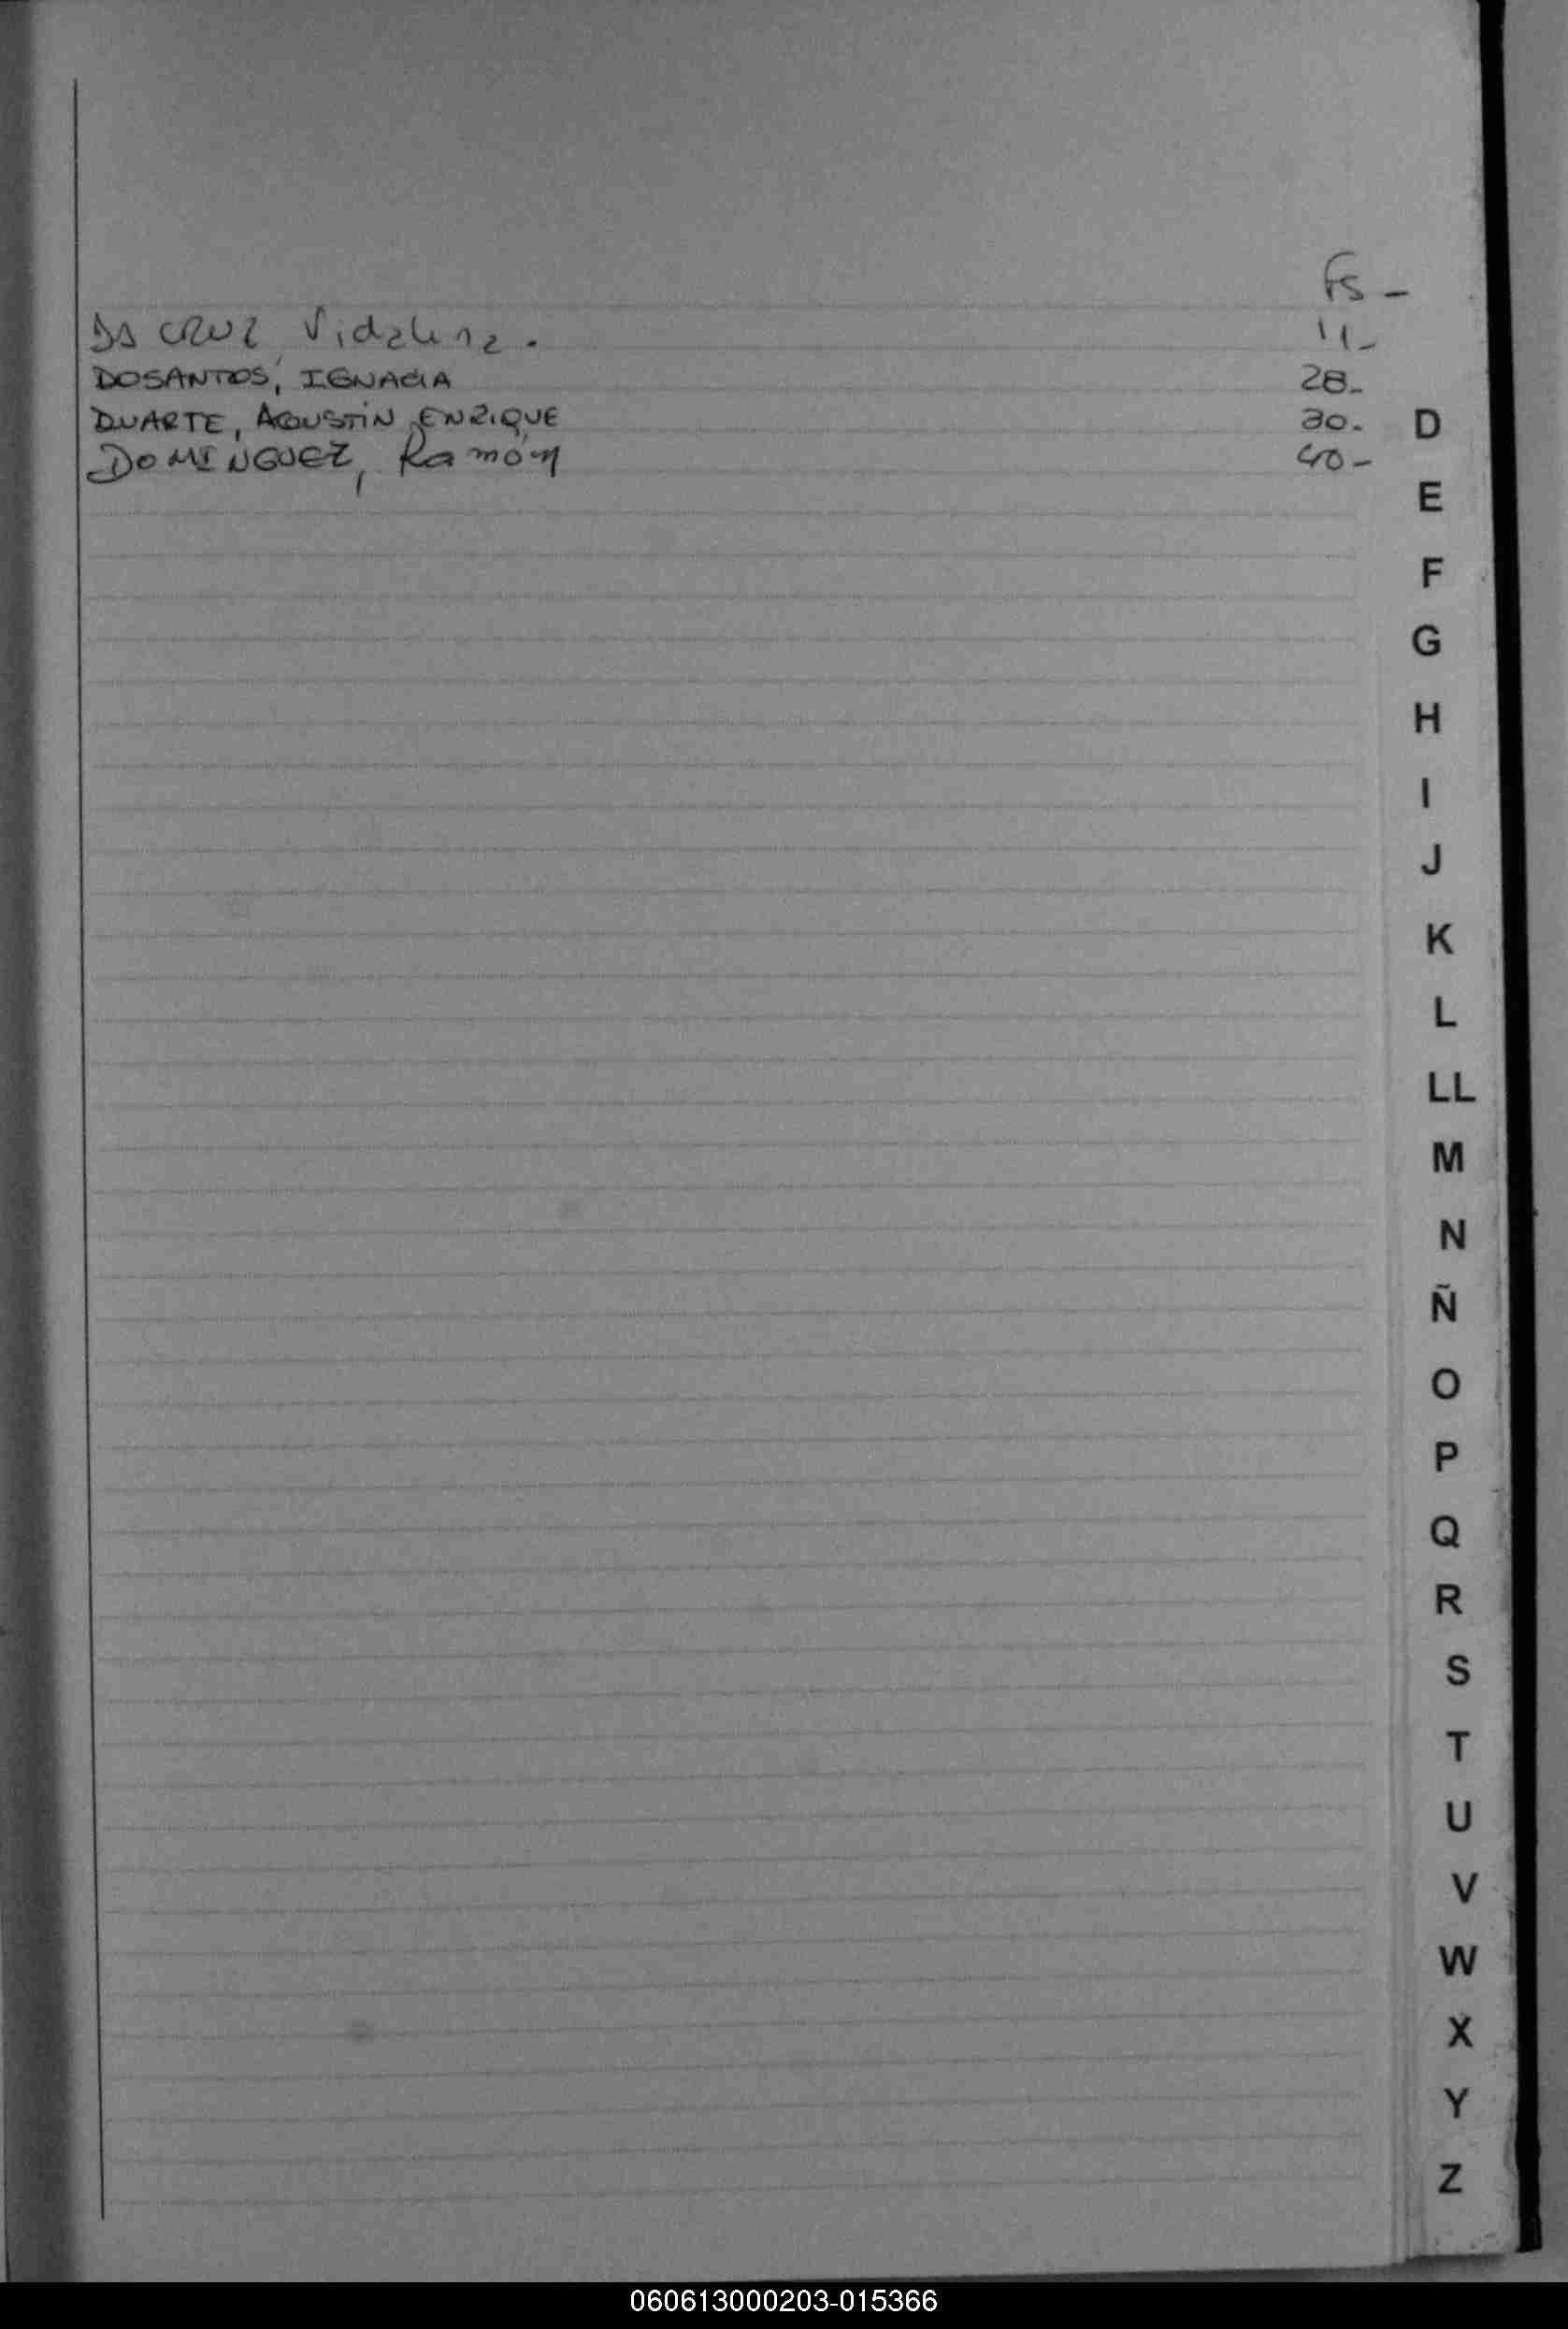 Fs -
DA CRUZ Vidalina. 11-
DOSANTOS, IGNACIA 28-
DUARTE, AGUSTÍN ENRIQUE 30.
DOMINGUEZ, Ramón 40-
D
E
F
G
H
I
J
K
L
LL
M
N
Ñ
O
P
Q
R
S
T
U
V
W
X
Y
Z
060613000203-015366